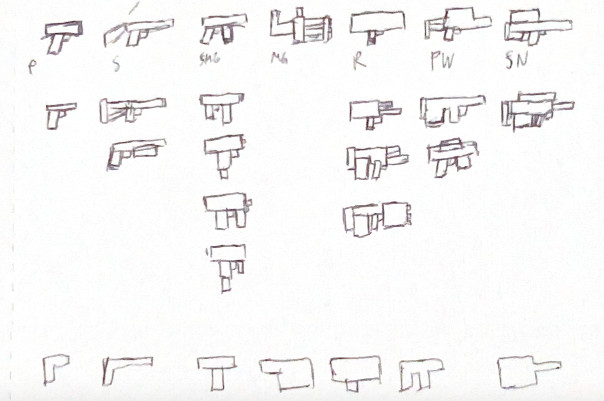 P S SMG MG R PW SN